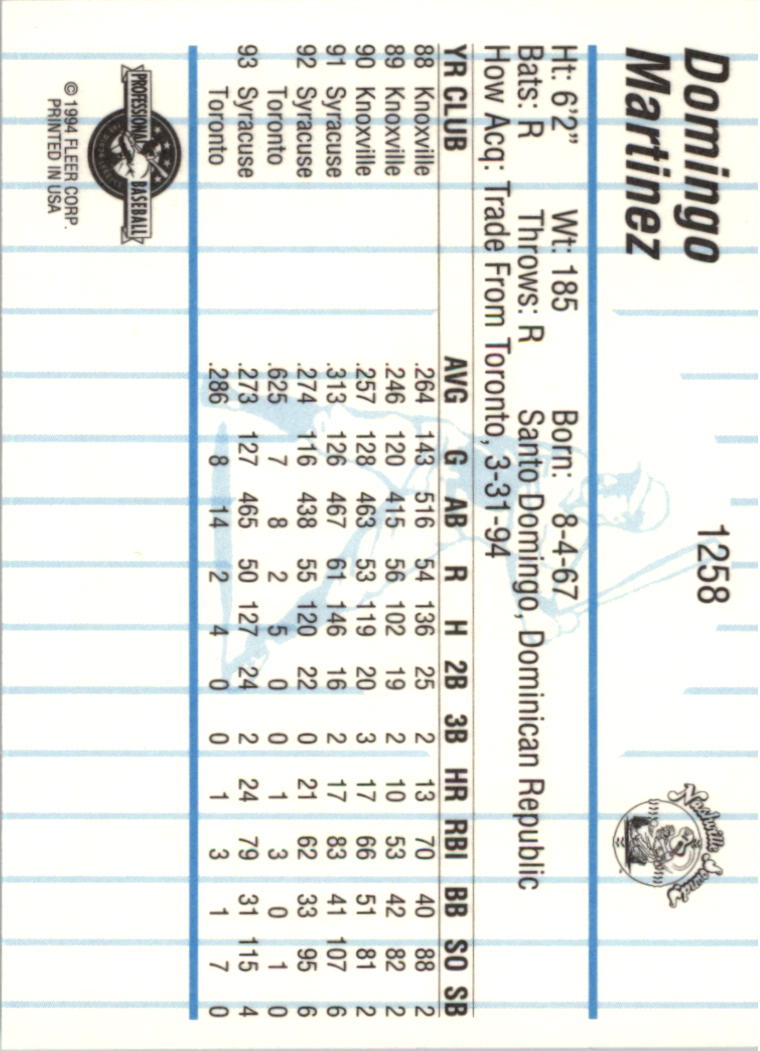 Domingo
Martinez
1258
Nashville Sounds
Ht: 6'2" Wt: 185 Born: 8-4-67
Bats: R Throws: R Santo Domingo, Dominican Republic
How Acq: Trade From Toronto, 3-31-94
YR CLUB AVG G AB R H 2B 3B HR RBI BB SO SB
88 Knoxville .264 143 516 54 136 25 2 13 70 40 88 2
89 Knoxville .246 120 415 56 102 19 2 10 53 42 82 2
90 Knoxville .257 128 463 53 119 20 3 17 66 51 81 2
91 Syracuse .313 126 467 61 146 16 2 17 83 41 107 6
92 Syracuse .274 116 438 55 120 22 0 21 62 33 95 6
Toronto .625 7 8 2 5 0 0 1 3 0 1 0
93 Syracuse .273 127 465 50 127 24 2 24 79 31 115 4
Toronto .286 8 14 2 4 0 0 1 3 1 7 0
PROFESSIONAL BASEBALL
© 1994 FLEER CORP.
PRINTED IN USA